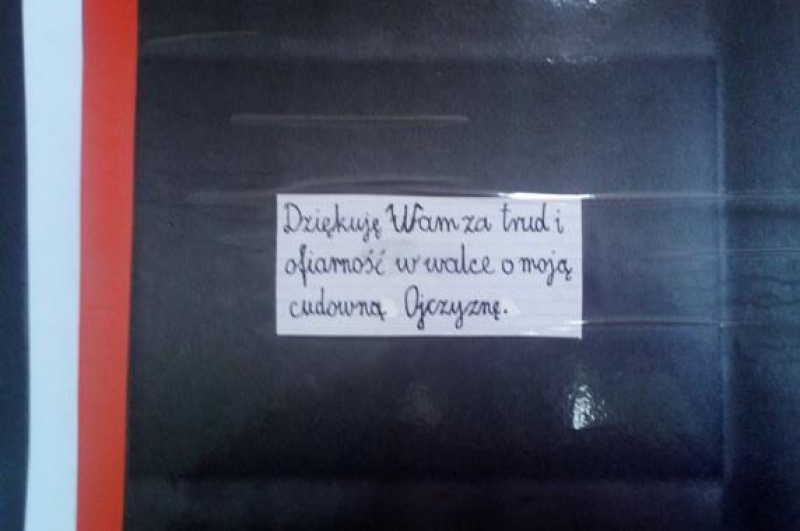 Dziękuję Wam za trud i
ofiarność w walce o moją
cudowną Ojczyznę.